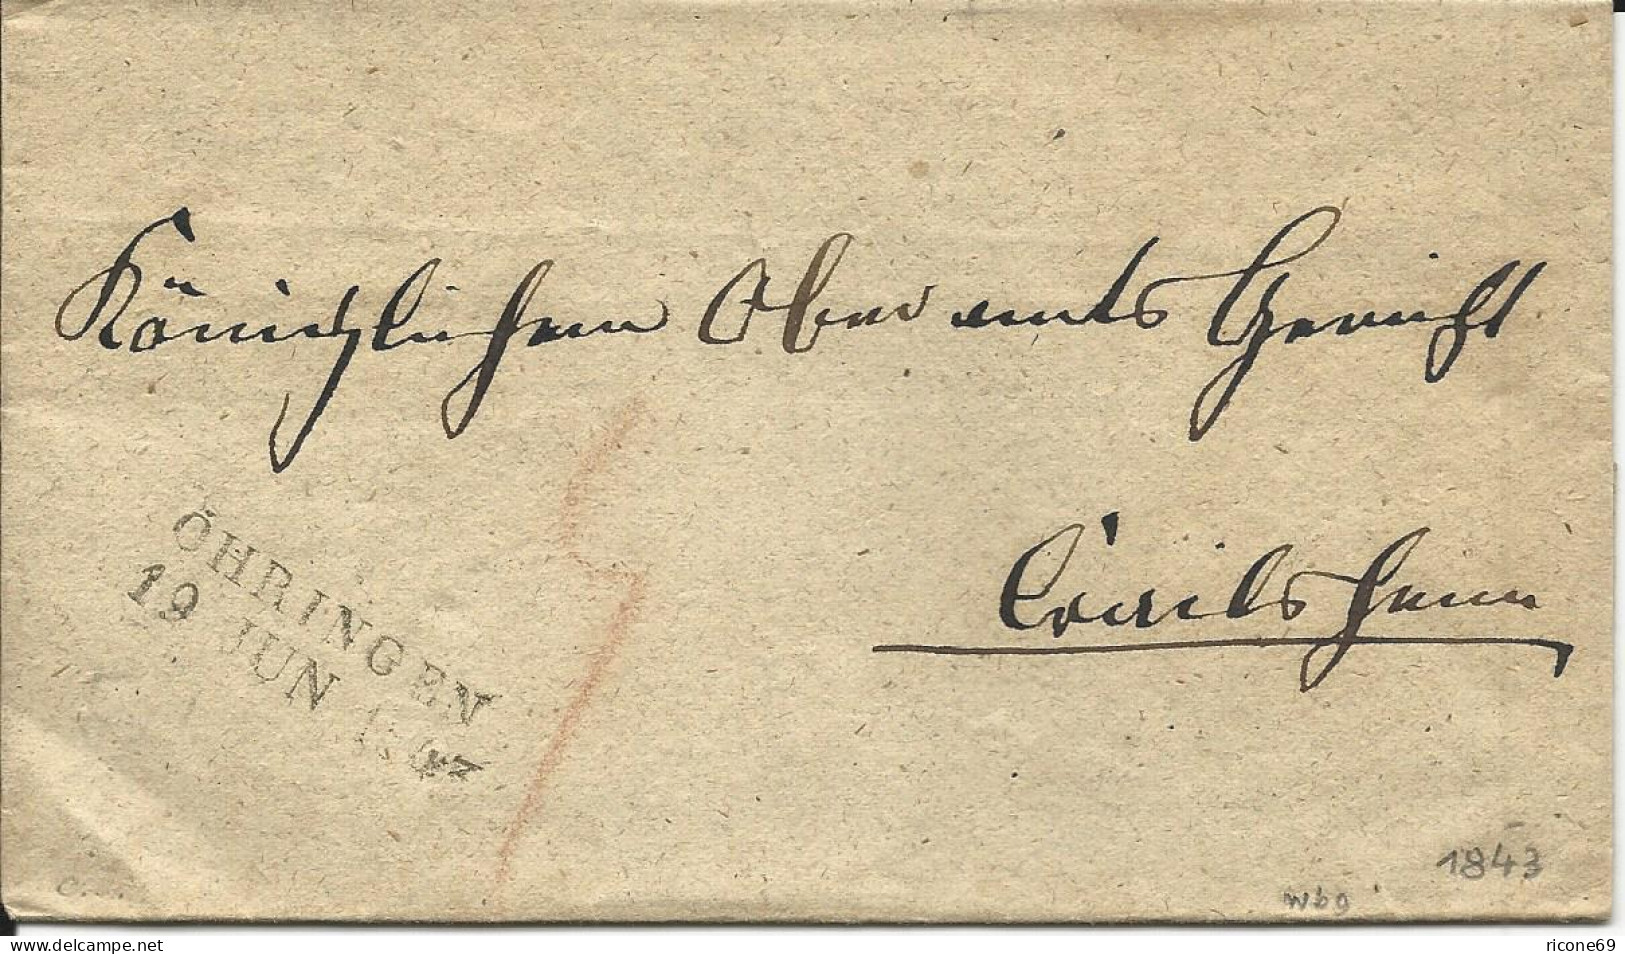 Königlichen Oberamts Gericht
Crailsheim
ÖHRINGEN
19 JUN 1843
1843
Wbg
delcampe.net
ricone69